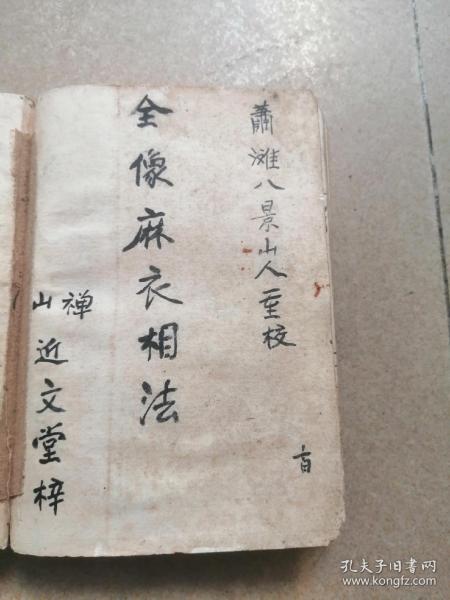 萧滩八景山人重校
全像麻衣相法
禅山近文堂梓
孔夫子旧书网
www.kongfz.com